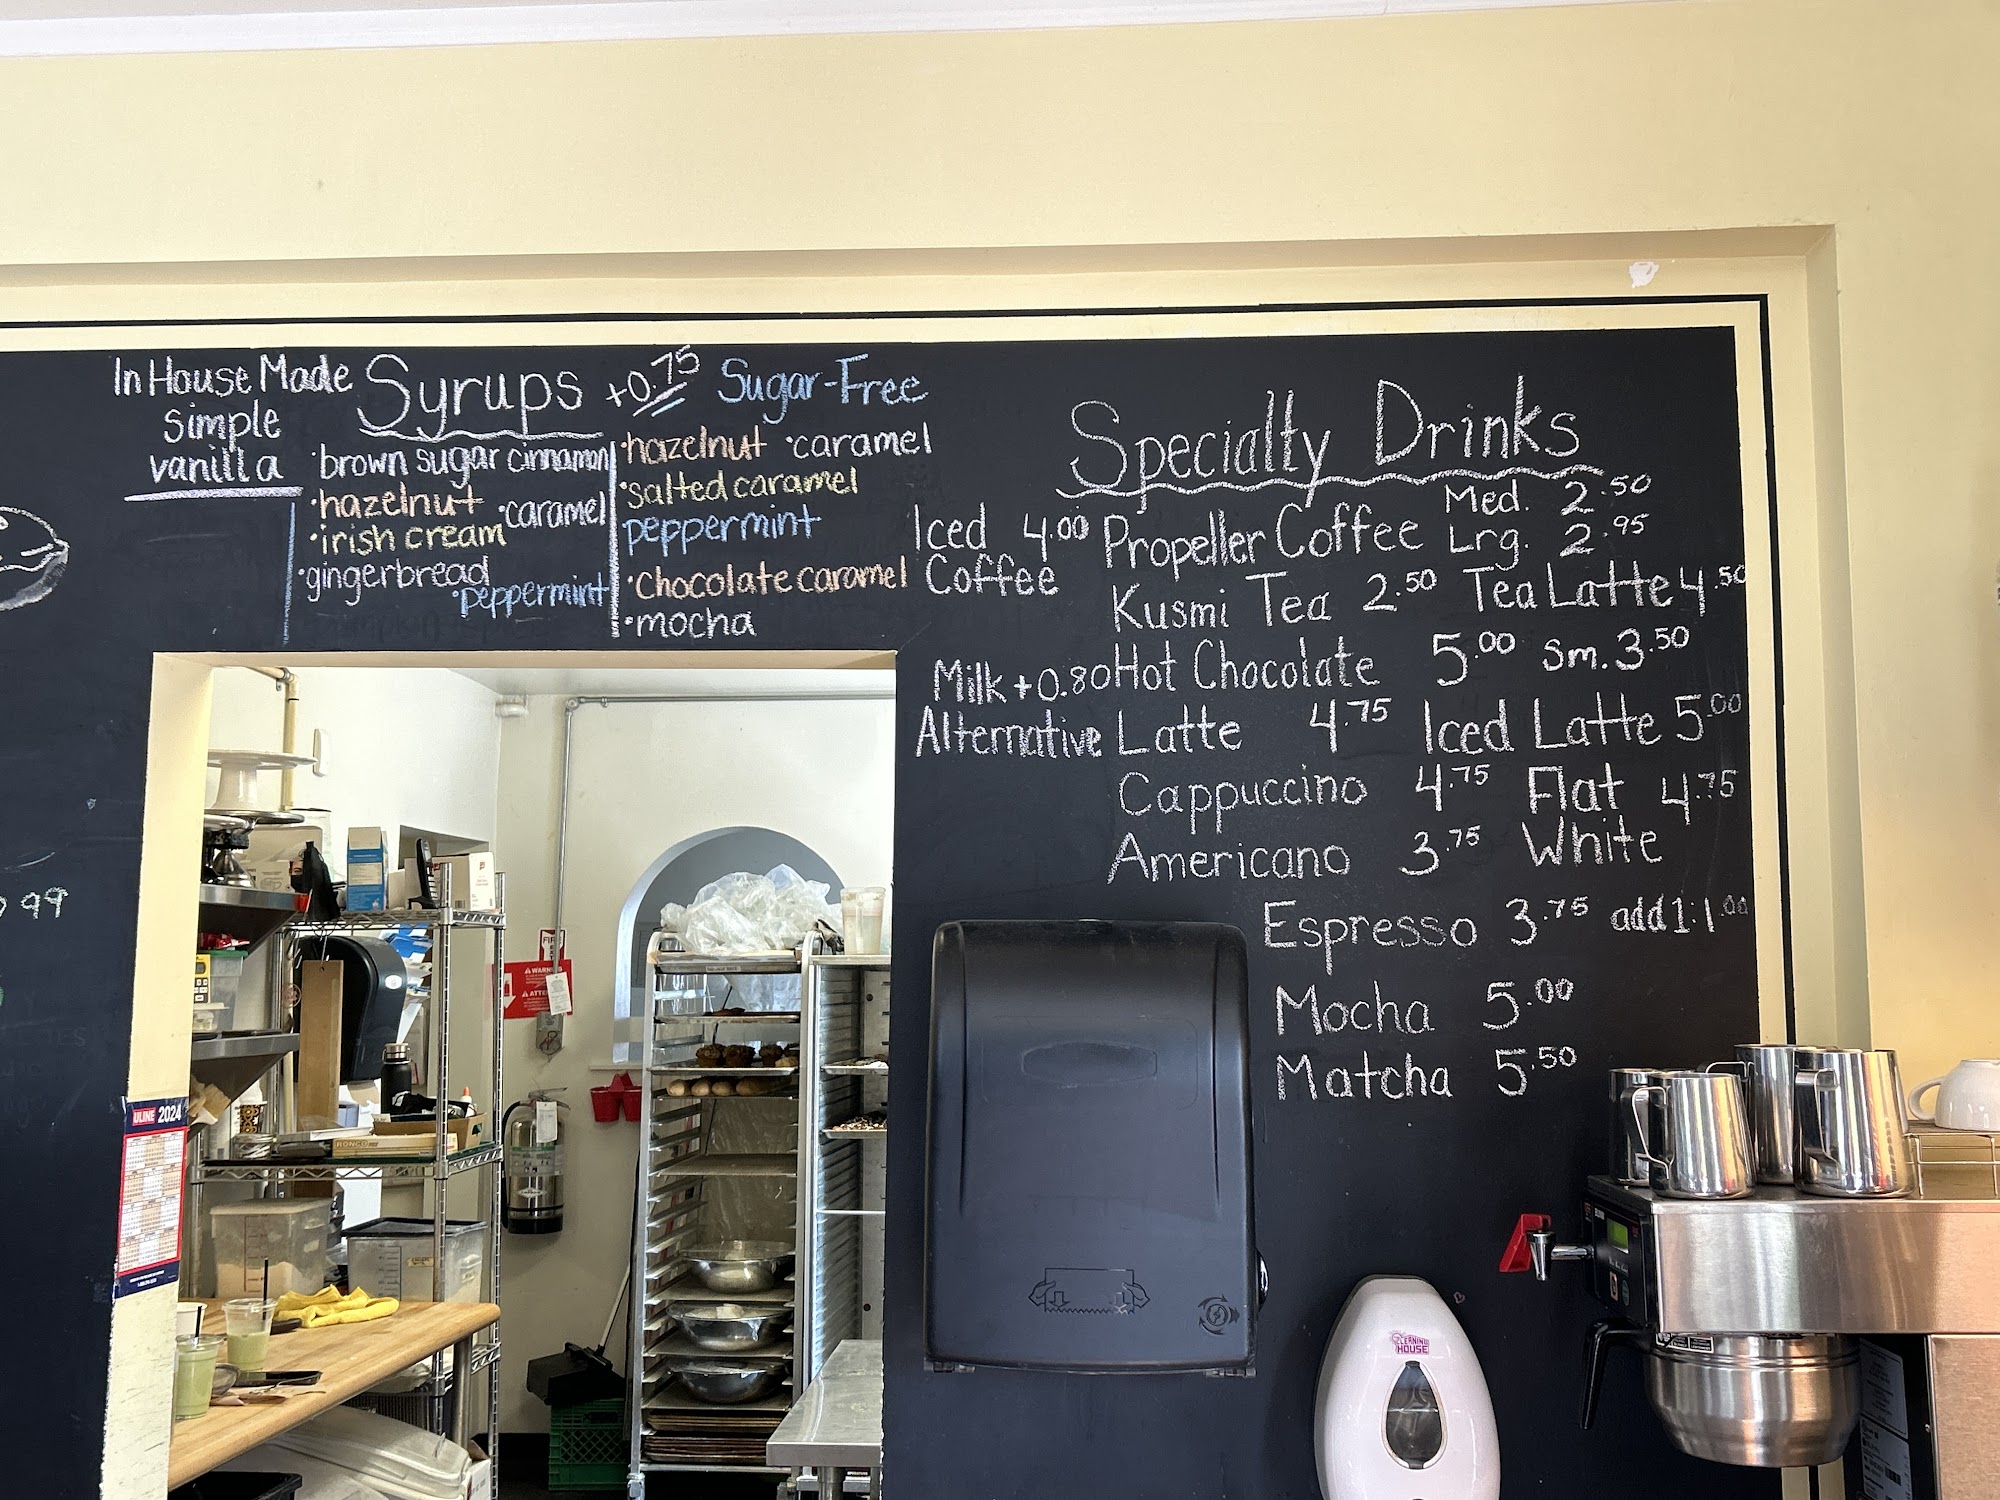 In House Made
simple
vanilla
Syrups +0.75
·brown sugar cinnamon
·hazelnut ·caramel
·irish cream
·gingerbread
·peppermint
Sugar-Free
·hazelnut ·caramel
·salted caramel
peppermint
·chocolate caramel
·mocha
Specialty Drinks
Iced 4.00
Coffee
Milk +0.80
Alternative
Propeller Coffee Med. 2.50
Lrg. 2.95
Kusmi Tea 2.50 Tea Latte 4.50
Hot Chocolate 5.00 Sm. 3.50
Latte 4.75 Iced Latte 5.00
Cappuccino 4.75 Flat 4.75
White
Americano 3.75
Espresso 3.75 add 1:1.00
Mocha 5.00
Matcha 5.50
99
ULINE 2024
WARNING
RONCO
CLEANING
HOUSE